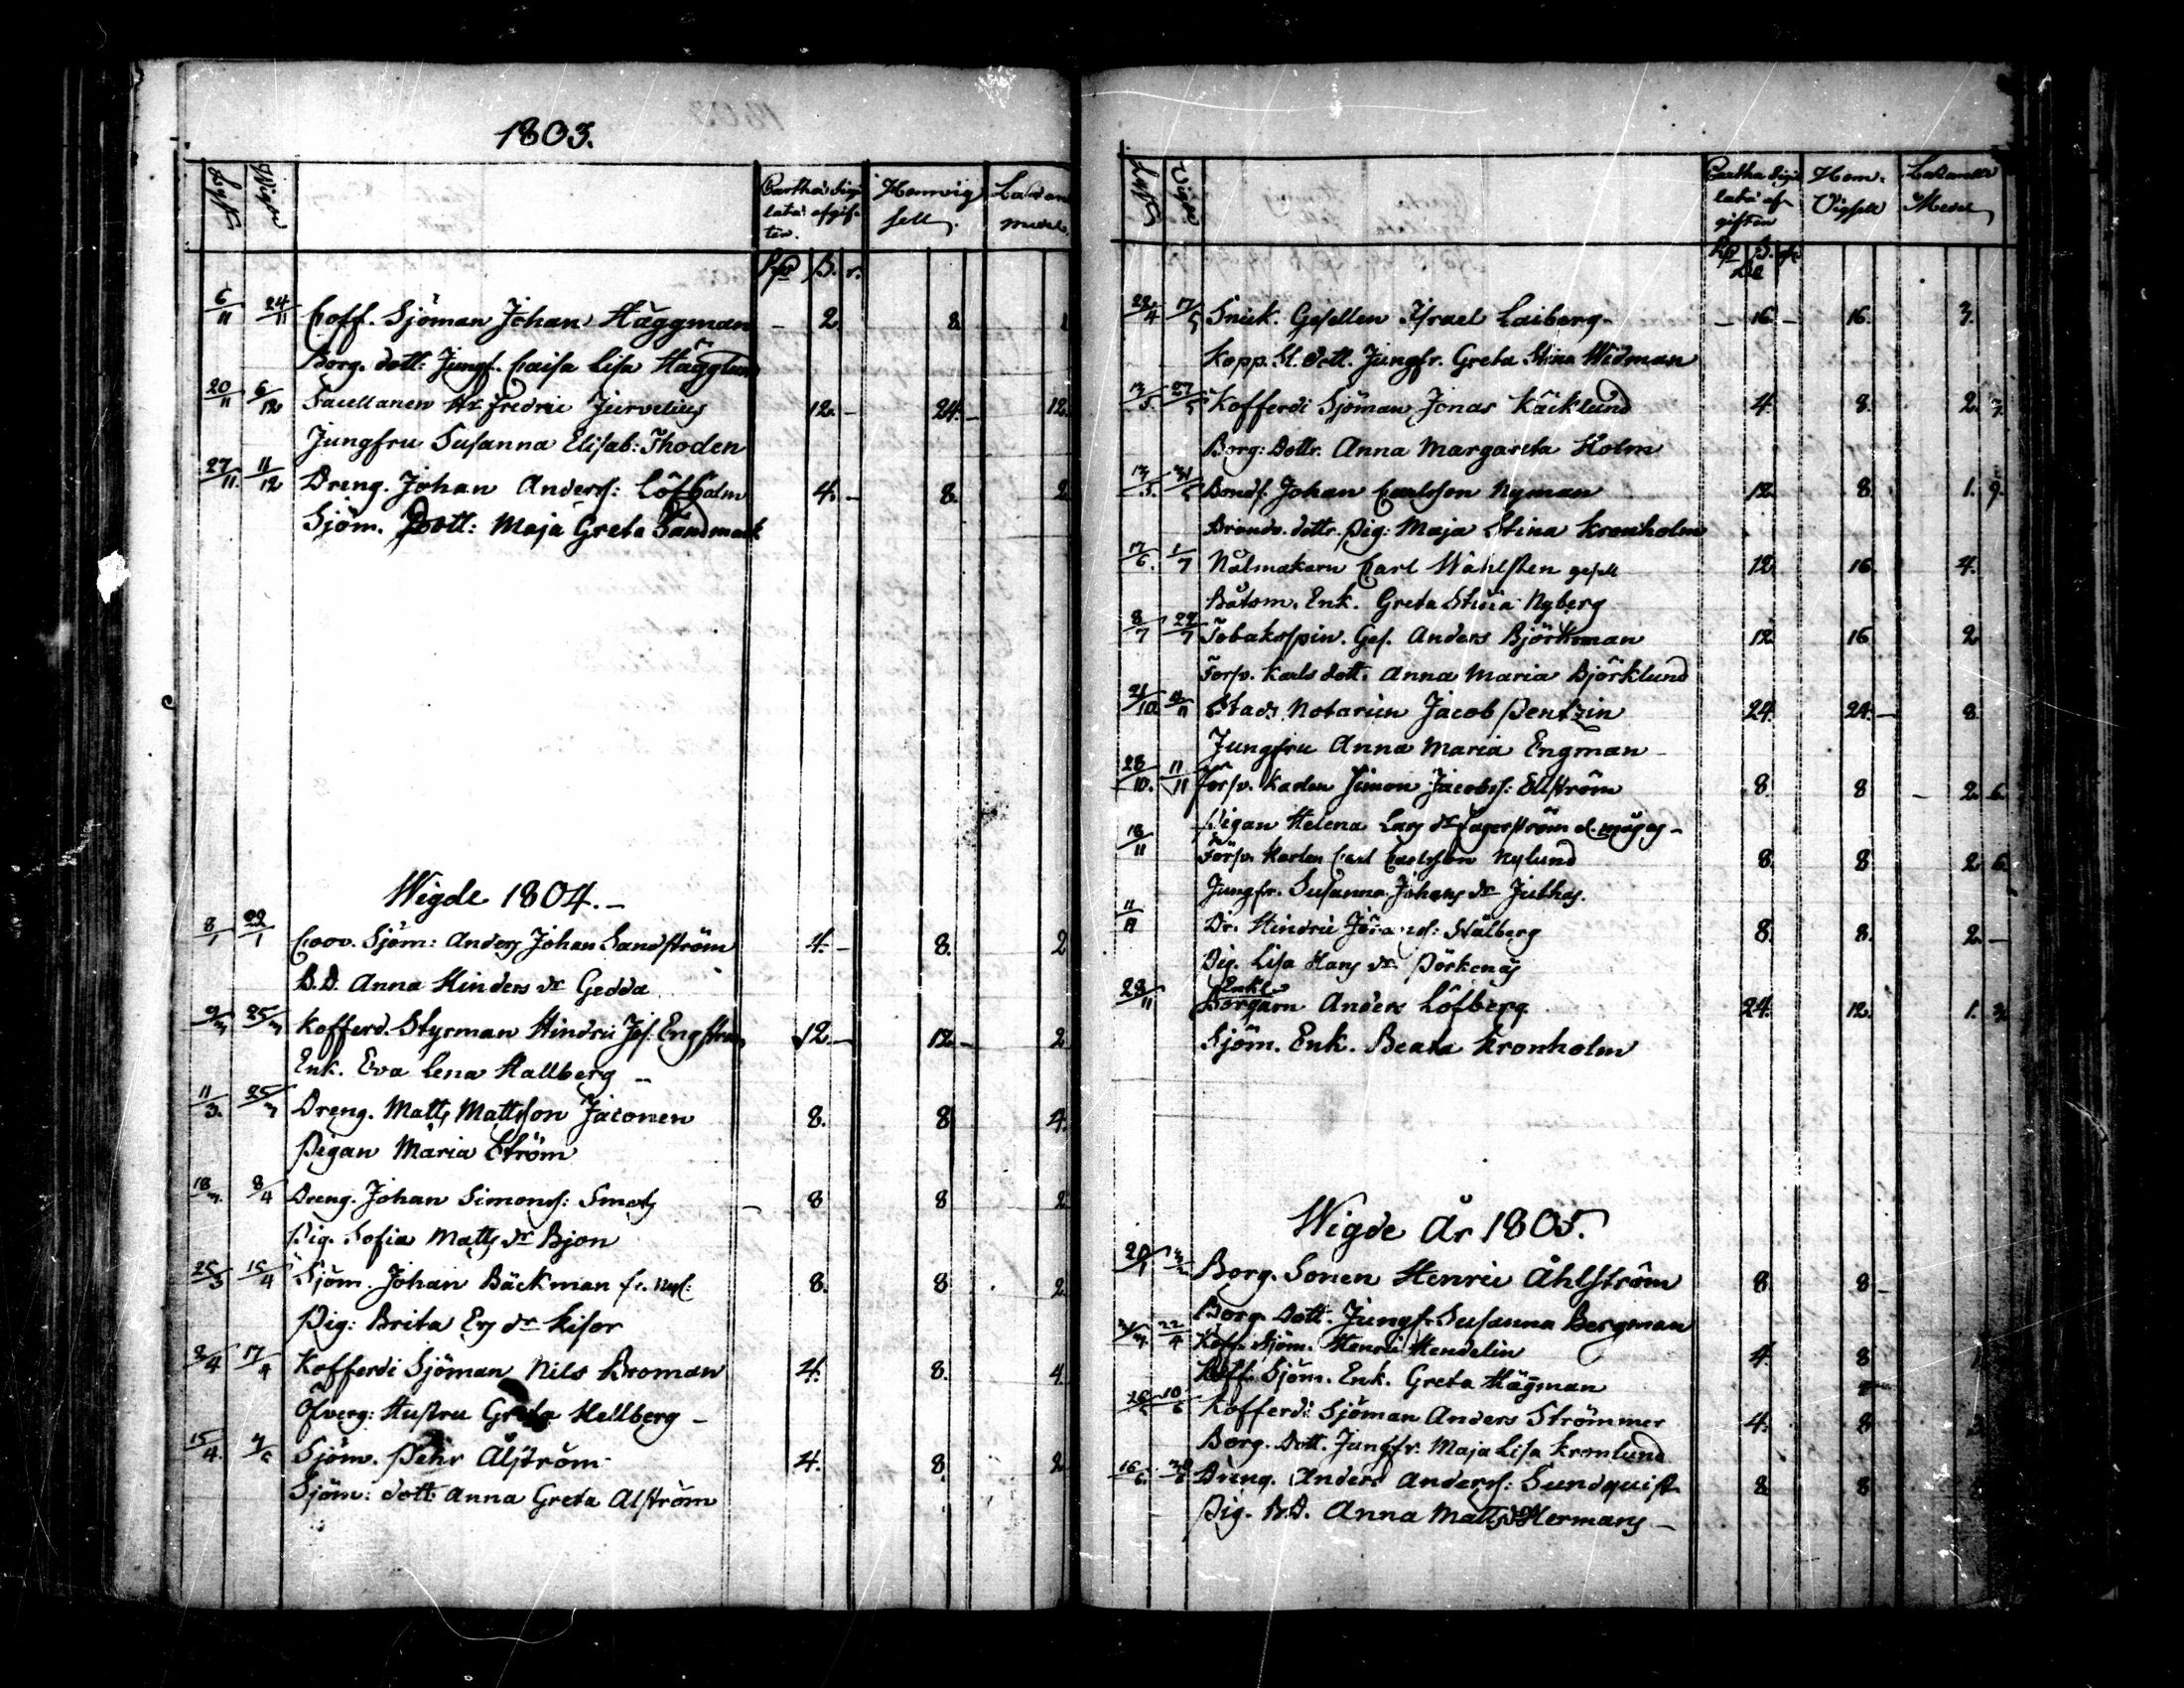 1803.
Lyst Wigde Cartha Sigi Hemvig Lasar
lata afgif- sell medel
ter.
6/11 24/11 Coff. Sjöman Johan Häggman - 2. 8.
Borg. dott. Jungf. Caisa Lisa Hägglun
20/11 6/12 Hr Fredric 12. - 24. - 12.
Jungfru Susanna Elisab: Thoden
27/11. 11/12 Dreng. Johan Anderss: Löfholm 4. - 8. 2
Sjöm. Dott: Maja Greta Sandmark
Wigde 1804. -
8/1 22/1 Coov. Sjöm: Anders Johan Sandström 4. - 8. 2
B.D. Anna Hinders dr Gedda
25/3 Kofferd. Styrman Hindric Jos. Engström 12. - 12 - 2
Enk. Eva Lena Hallberg -
11/3. 25/3 Dreng. Matts Mattsson Jaconen 8. 8 4.
Pigan Maria Ström
18/3. 8/4 Dreng. Johan Simonss: Smats - 8 8 2
Pig. Sofia Matts dr Bjon
25/3 15/4 Sjöm. Johan Bäckman 8. 8 2
Pig: Brita Ers dr Kisor
2/4 17/4 Kofferdi Sjöman Nils Broman 4. 8. 4.
Öfverg: Hustru Greta Hellberg -
15/4. Sjöm. Pehr Alström 4. 8. 2
Sjöm: dott. Anna Greta Alström
Lyst Vigde Cartha Sigil Hem. Lasaretts
lata af- Vigsell Medel
giften
22/4 17/5 Snick. Gesellen Israel Laiberg - - 16. - 16. 3.
Kopp. Sl. dott. Jungfr. Greta Stina Widman
13/5. 27/5 Kofferdi Sjöman Jonas Käcklund 4. 8. 2. 7.
Borg: Dottr. Anna Margareta Holm
13/5. 31/5 Bonds. Johan Carlsson Nyman 12. 8. 1. 9.
Brandv. dottr. Pig: Maja Stina Kronholm
17/6. 1/7 Nålmakarn Carl Wahlsten gesell 12 16. 4.
Båtsm. Enk. Greta Stina Nyberg
8/7 22/7 Tobaksspin. Ges. Anders Björkman 12 16 2
Försv. Karls dott. Anna Maria Björklund
21/10. 11/11 Stads Notarien Jacob Pentzin 24. 24. - 8.
Jungfru Anna Maria Engman -
28/10. 11/11 Försv. Karlen Simon Jacobss: Ellström 8. 8 - 2. 6.
Pigan Helena Lars dr Lagerström
18/11 Försv. Karlen Carl Carlsson Nylund 8 8 2 6.
Jungfr. Susanna Johans dr Juthas.
11/11 Dr. Hindric Stålberg 8. 8. 2. -
Pig. Lisa Hans dr Pörkenäs
Enkl.
23/11 Borgarn Anders Löfberg. 24. 12. 1. 3.
Sjöm. Enk. Beata Kronholm
Wigde År 1805.
20/1 Borg. Sonen Henric Åhlström 8 8 -
Borg. Dott. Jungfr Susanna Bergman
22/4 Koff. Sjöm. Henric Hendelin 4. 8
Koff. Sjöm. Enk. Greta Hägman
Kofferdi Sjöman Anders Strömmer 4. 8
Borg. Dott. Jungfr. Maja Lisa Kronlund
16/6. Dreng. Anders Anderss: Sundquist 8. 8
Pig. B.D. Anna Matts dr Hermans -